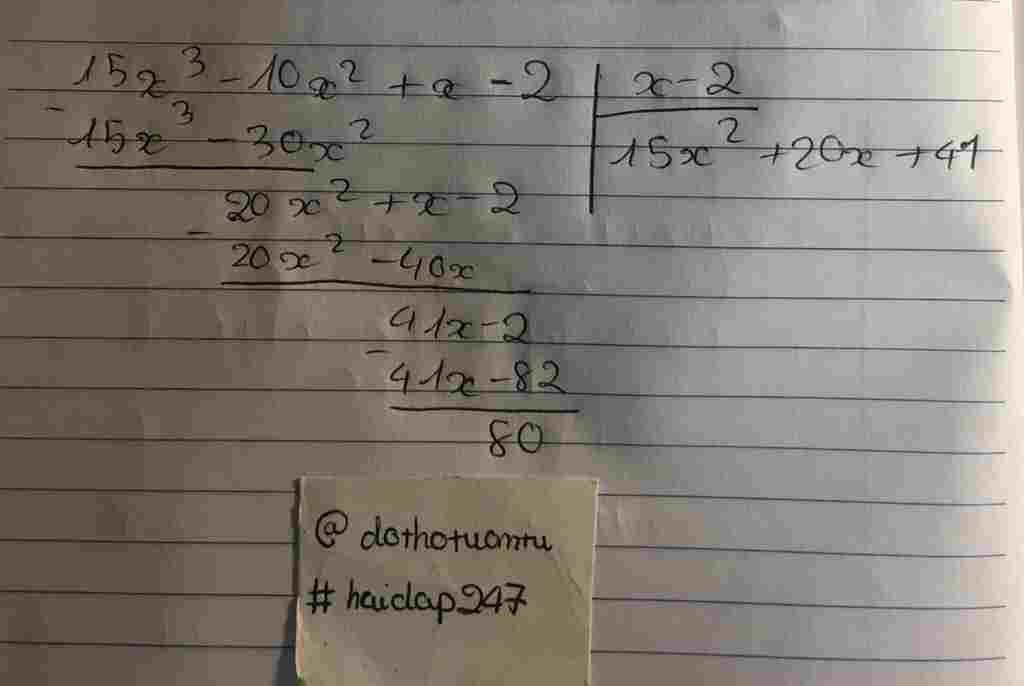 15x³ - 10x² + x - 2 | x - 2
- 15x³ - 30x² | 15x² + 20x + 41
20x² + x - 2
- 20x² - 40x
41x - 2
- 41x - 82
80
@ dothotuantu
# hoidap247